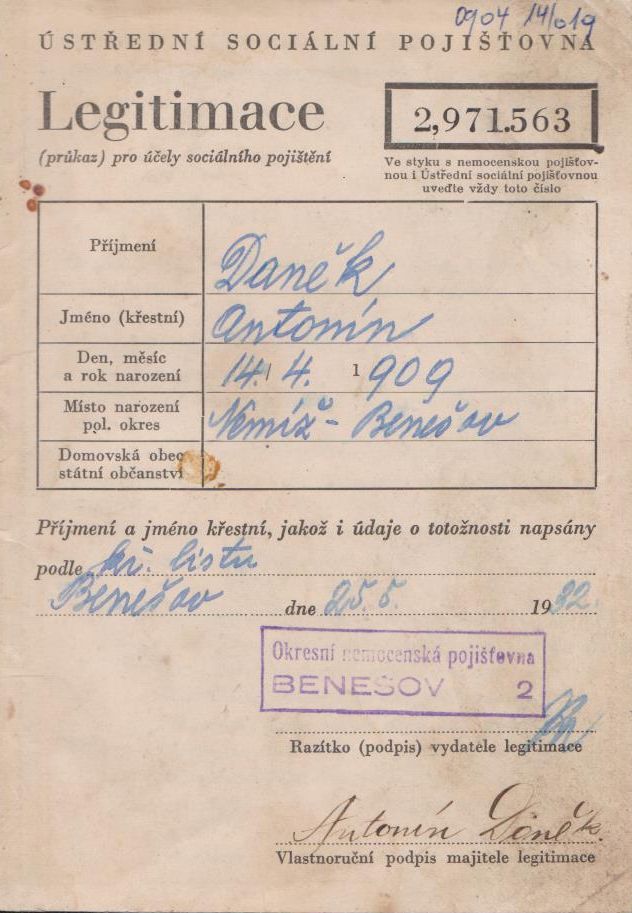 0904 14/019
ÚSTŘEDNÍ SOCIÁLNÍ POJIŠŤOVNA
Legitimace
(průkaz) pro účely sociálního pojištění
2,971.563
Ve styku s nemocenskou pojišťov-
nou i Ústřední sociální pojišťovnou
uveďte vždy toto číslo
Příjmení
Daněk
Jméno (křestní)
Antonín
Den, měsíc
a rok narození
14. 4. 1909
Místo narození
pol. okres
Nemíž - Benešov
Domovská obec
státní občanství
Příjmení a jméno křestní, jakož i údaje o totožnosti napsány
podle kř. listu
Benešov dne 25. 5. 1932.
Okresní nemocenská pojišťovna
BENEŠOV 2
Razítko (podpis) vydatele legitimace
Antonín Daněk.
Vlastnoruční podpis majitele legitimace